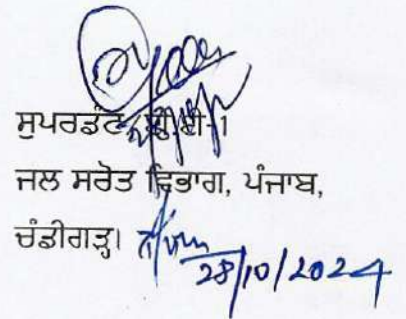 ਸੁਪਰਡੰਟ
ਜਲ ਸਰੋਤ ਵਿਭਾਗ, ਪੰਜਾਬ,
ਚੰਡੀਗੜ੍ਹ।
28/10/2024